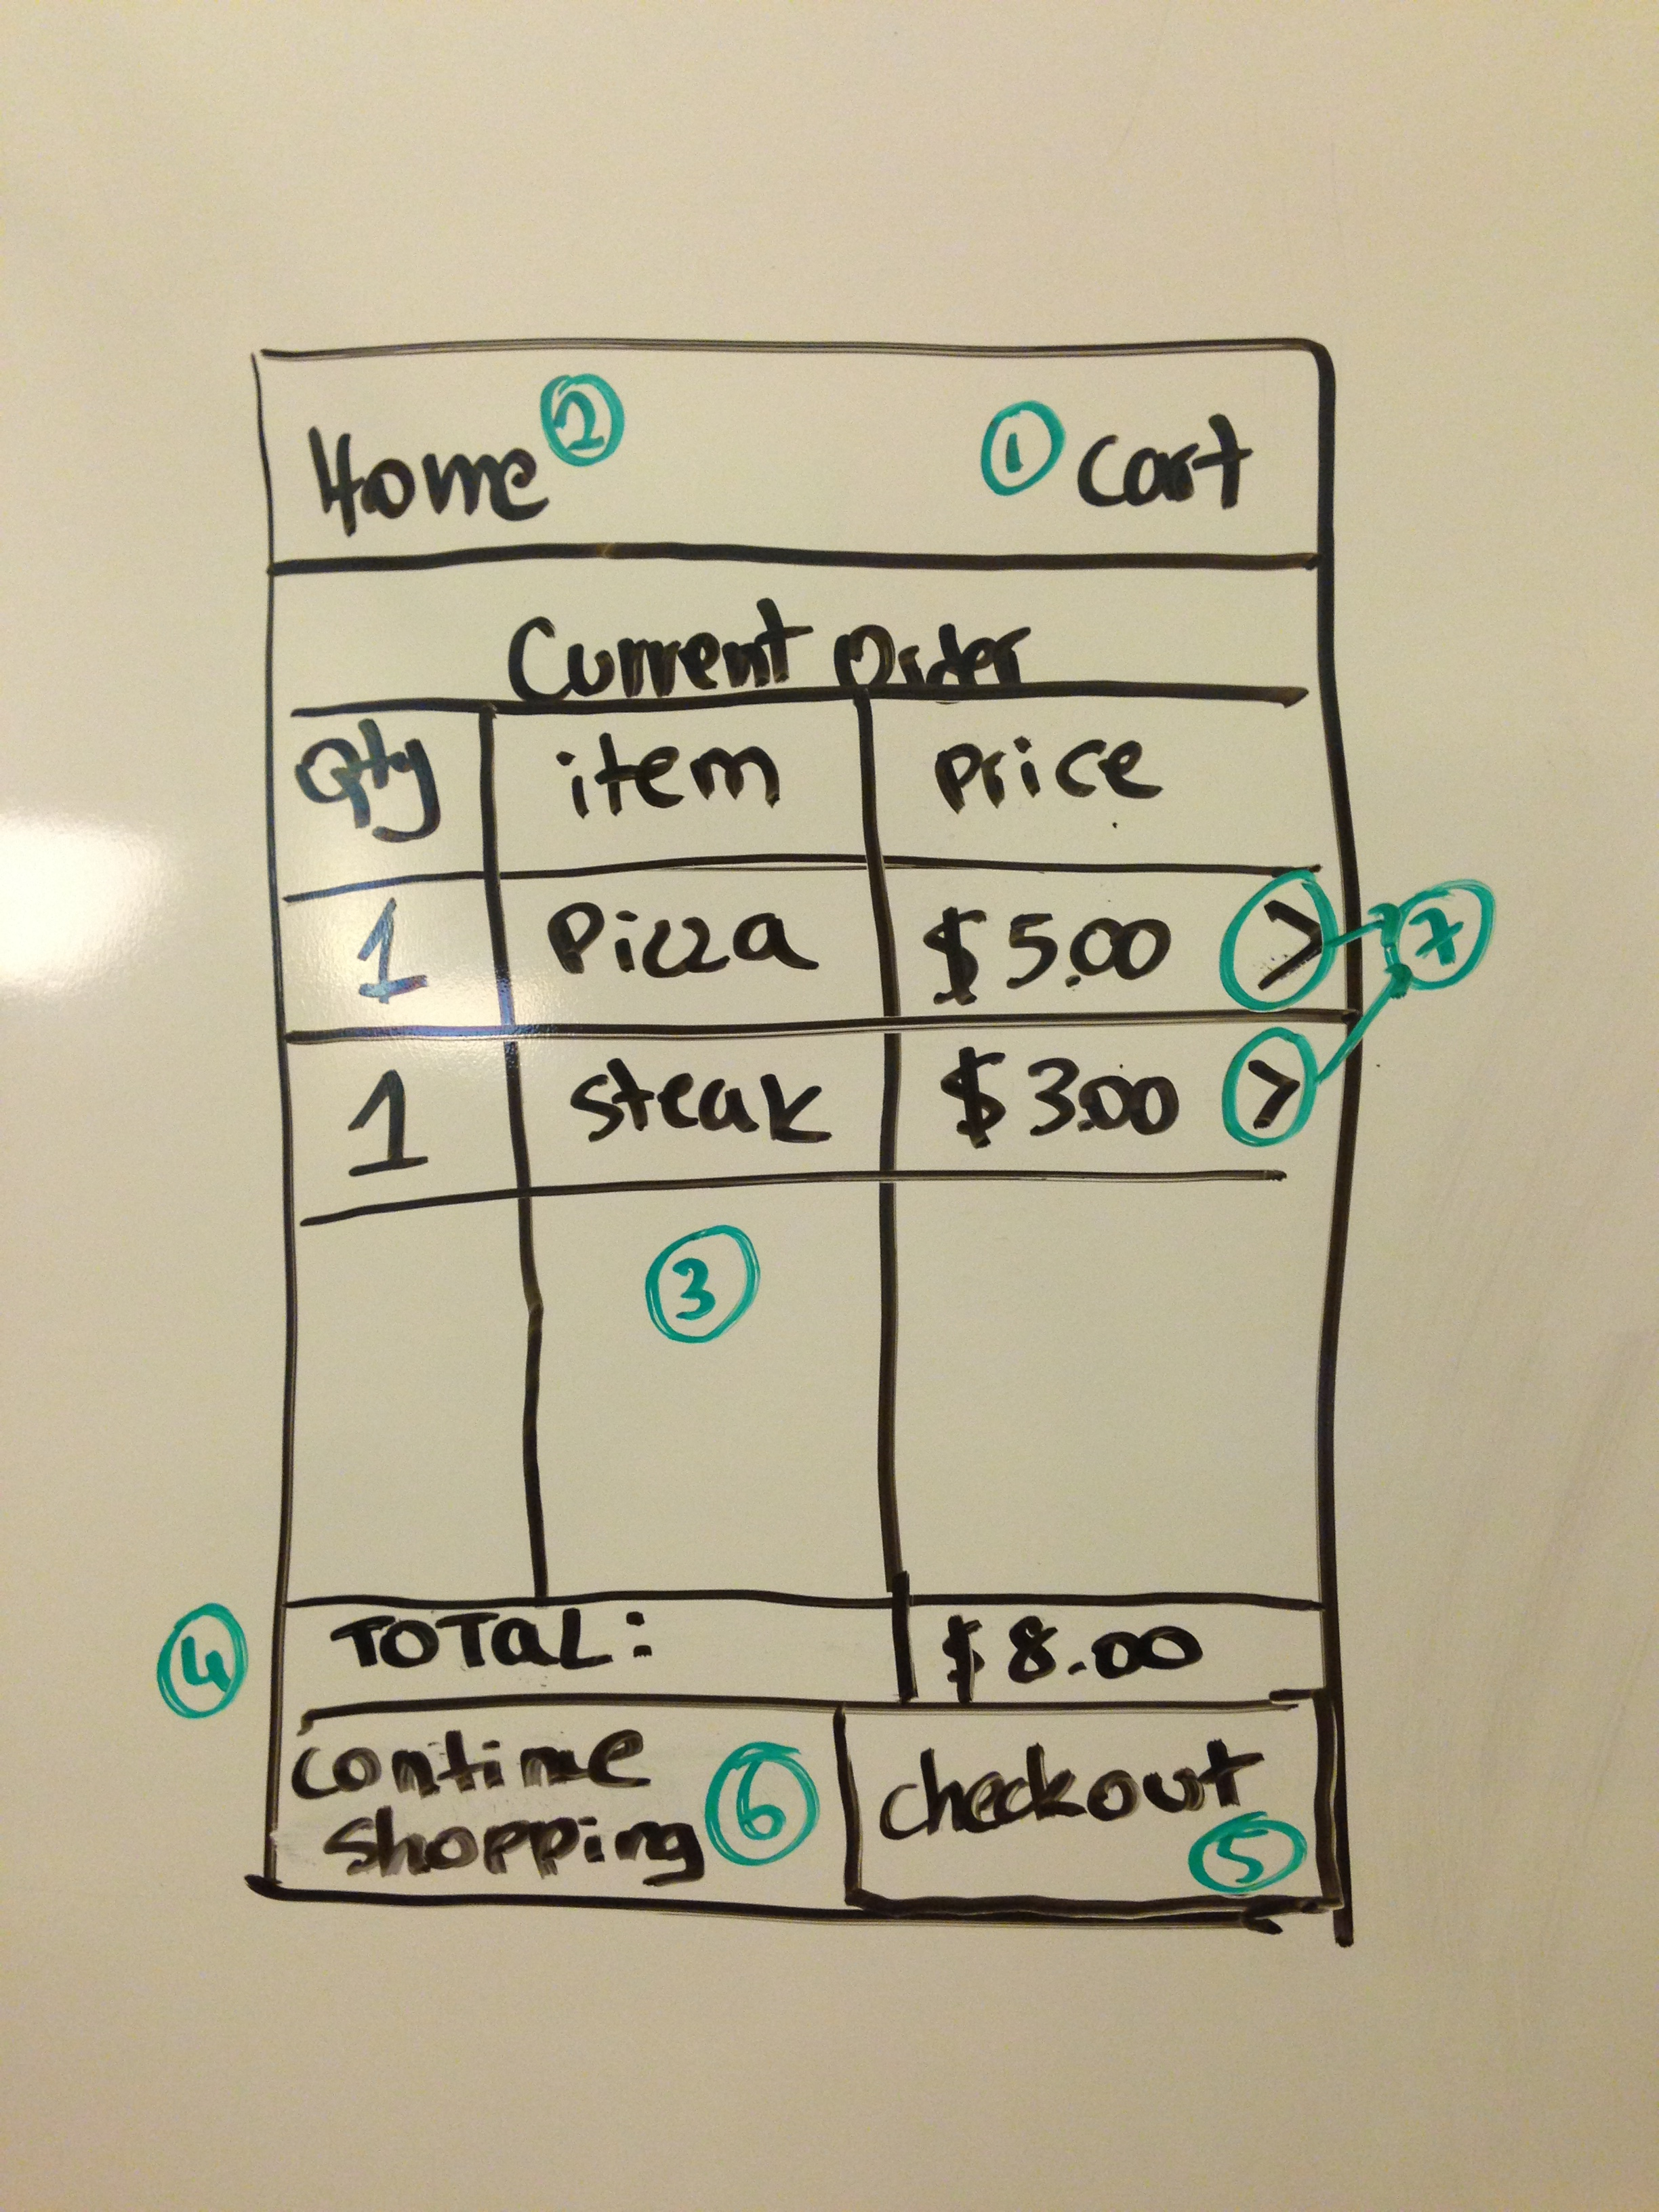 Home 2 1 Cart
Current Order
Qty item price
1 Pizza $5.00 > 7
1 steak $3.00 >
3
4 TOTAL: $8.00
contine
shopping 6 checkout
5